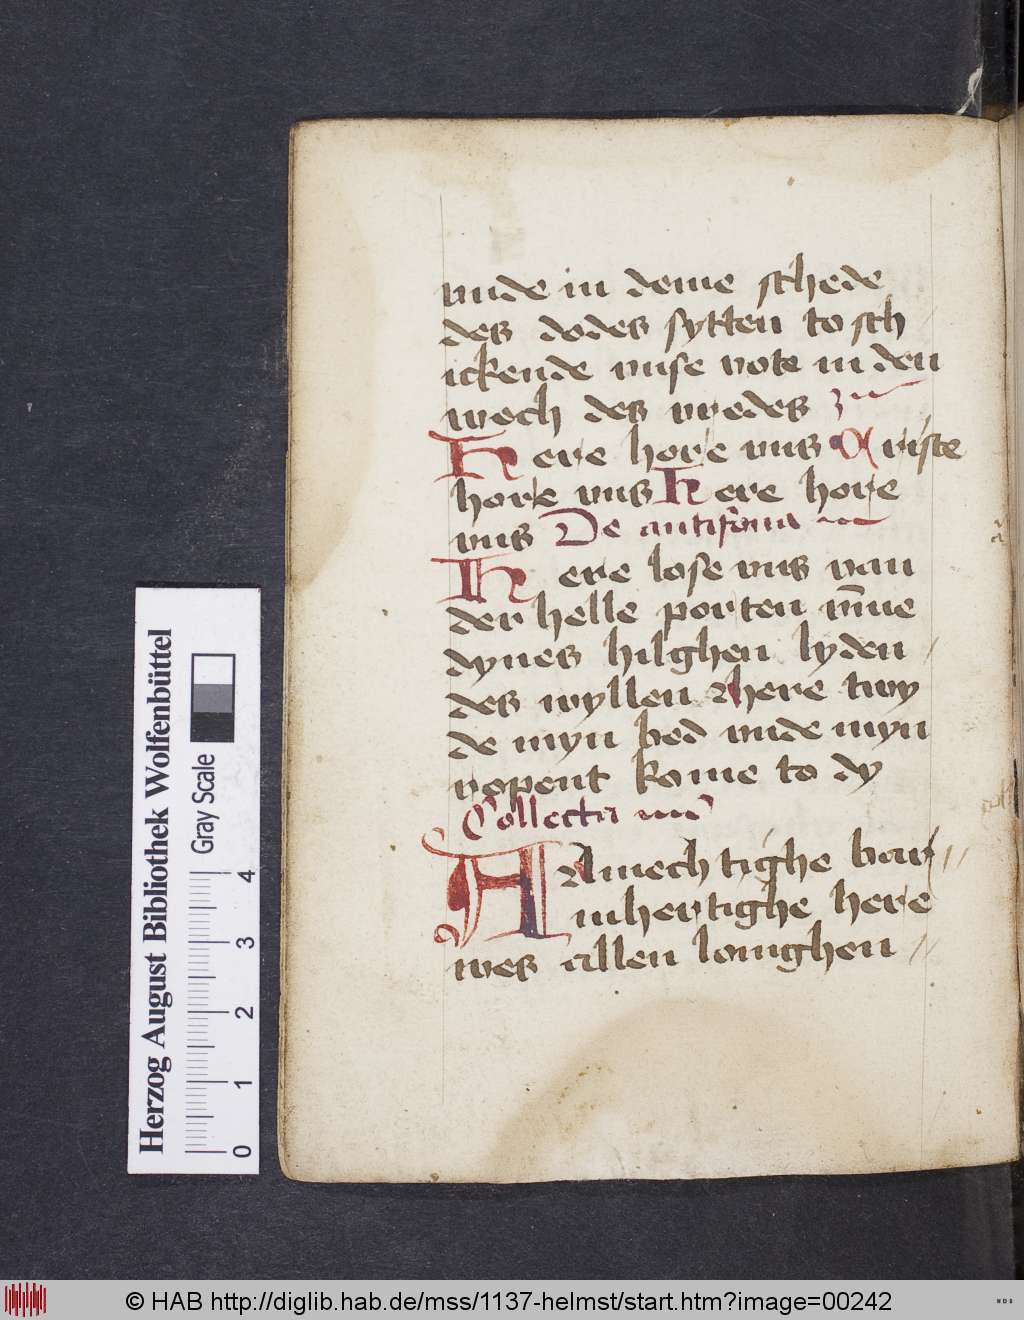 vnde in deme schede
des dodes sytten to sch
ickende vnse vote in den
wech des vredes
Here hore vns Criste
hore vns Here hore
vns De antifona
Here lose vns van
der helle porten vm̄me
dynes hilghen lyden
des wyllen here twy
de myn bed vnde myn
ropent kome to dy
Collecta
Almechtighe bar
mhertighe here
wes allen louighen
Herzog August Bibliothek Wolfenbüttel
Gray Scale
0 1 2 3 4
© HAB http://diglib.hab.de/mss/1137-helmst/start.htm?image=00242